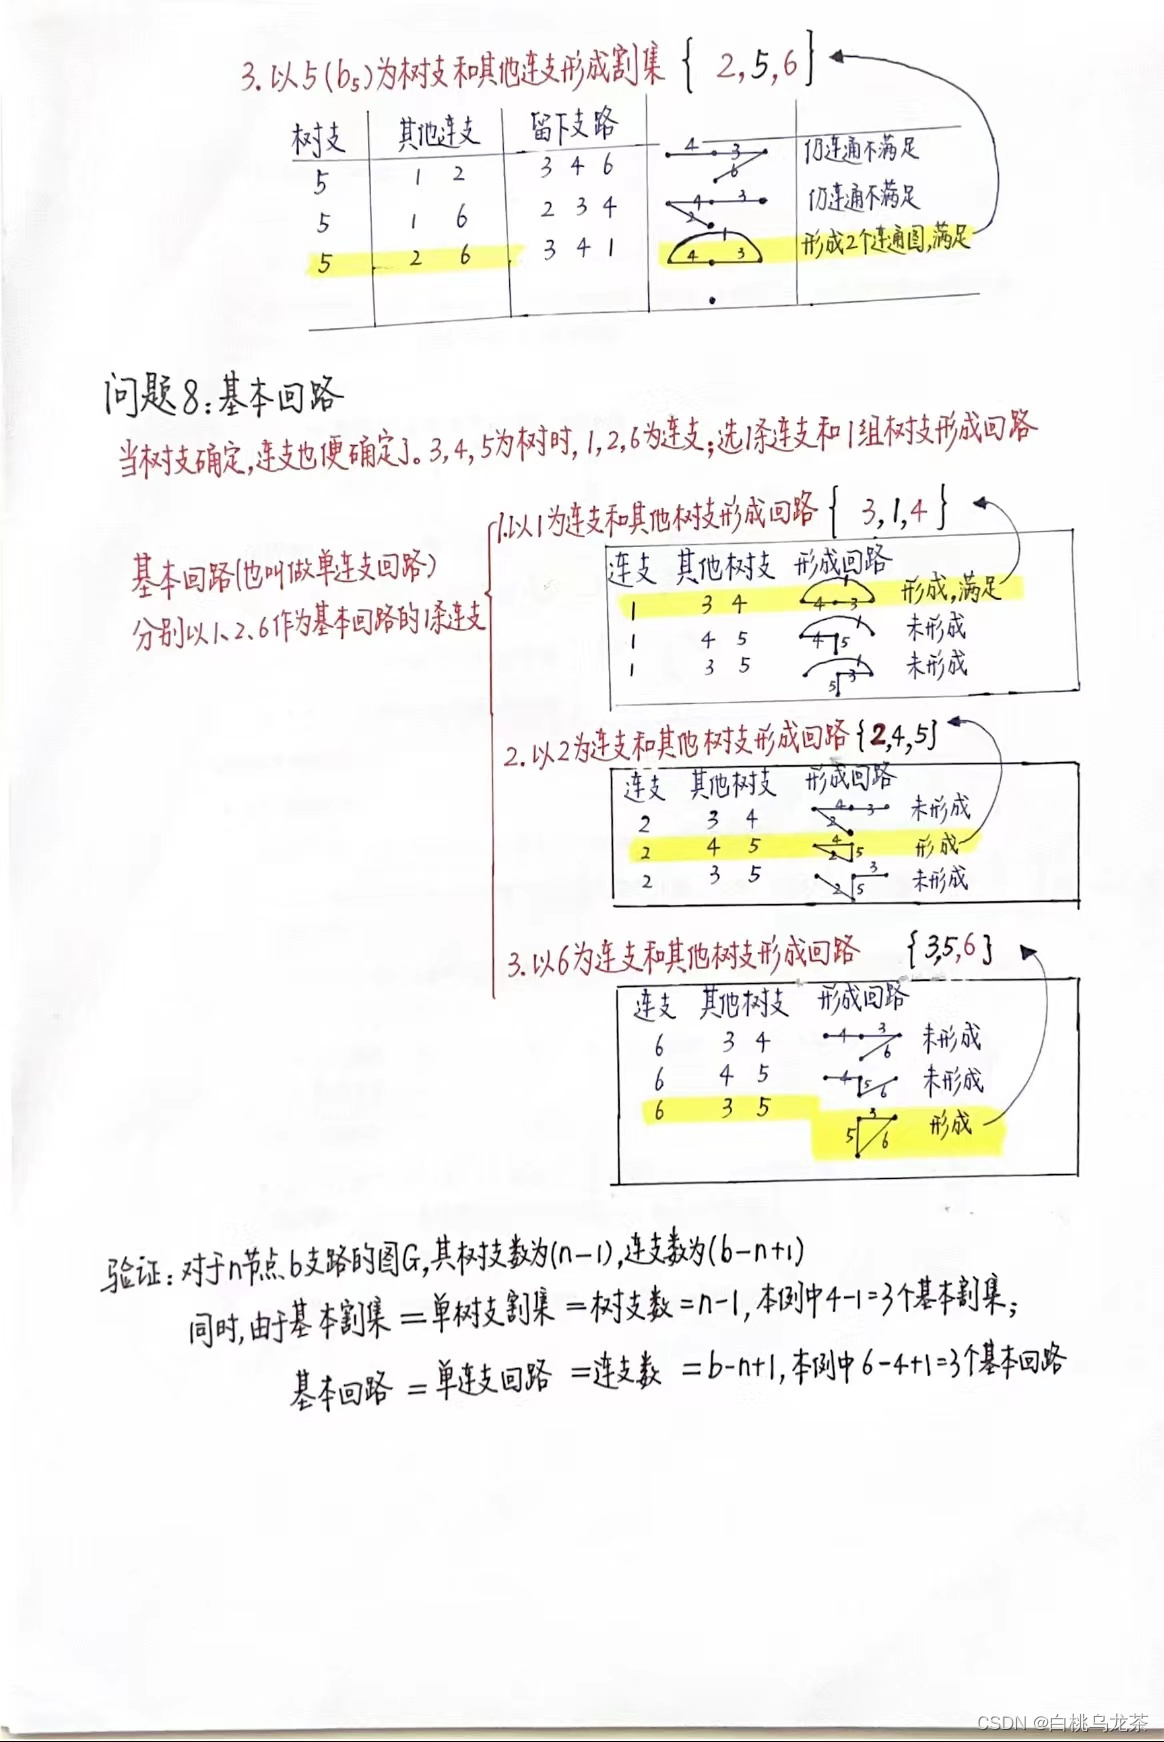 3.以5(b5)为树支和其他连支形成割集{2,5,6}
树支 其他连支 留下支路
5 1 2 3 4 6 4 3 6 仍连通不满足
5 1 6 2 3 4 4 3 2 仍连通不满足
5 2 6 3 4 1 1 4 3 形成2个连通图,满足
问题8:基本回路
当树支确定,连支也便确定了。3,4,5为树时,1,2,6为连支;选1条连支和1组树支形成回路
1.以1为连支和其他树支形成回路{3,1,4}
基本回路(也叫做单连支回路)
分别以1、2、6作为基本回路的1条连支
连支 其他树支 形成回路
1 3 4 1 4 3 形成,满足
1 4 5 1 4 5 未形成
1 3 5 1 3 5 未形成
2.以2为连支和其他树支形成回路{2,4,5}
连支 其他树支 形成回路
2 3 4 4 3 2 未形成
2 4 5 4 2 5 形成
2 3 5 3 2 5 未形成
3.以6为连支和其他树支形成回路 {3,5,6}
连支 其他树支 形成回路
6 3 4 4 3 6 未形成
6 4 5 4 5 6 未形成
6 3 5 3 5 6 形成
验证:对于n节点b支路的图G,其树支数为(n-1),连支数为(b-n+1)
同时,由于基本割集=单树支割集=树支数=n-1,本例中4-1=3个基本割集;
基本回路=单连支回路=连支数=b-n+1,本例中6-4+1=3个基本回路
CSDN @白桃乌龙茶